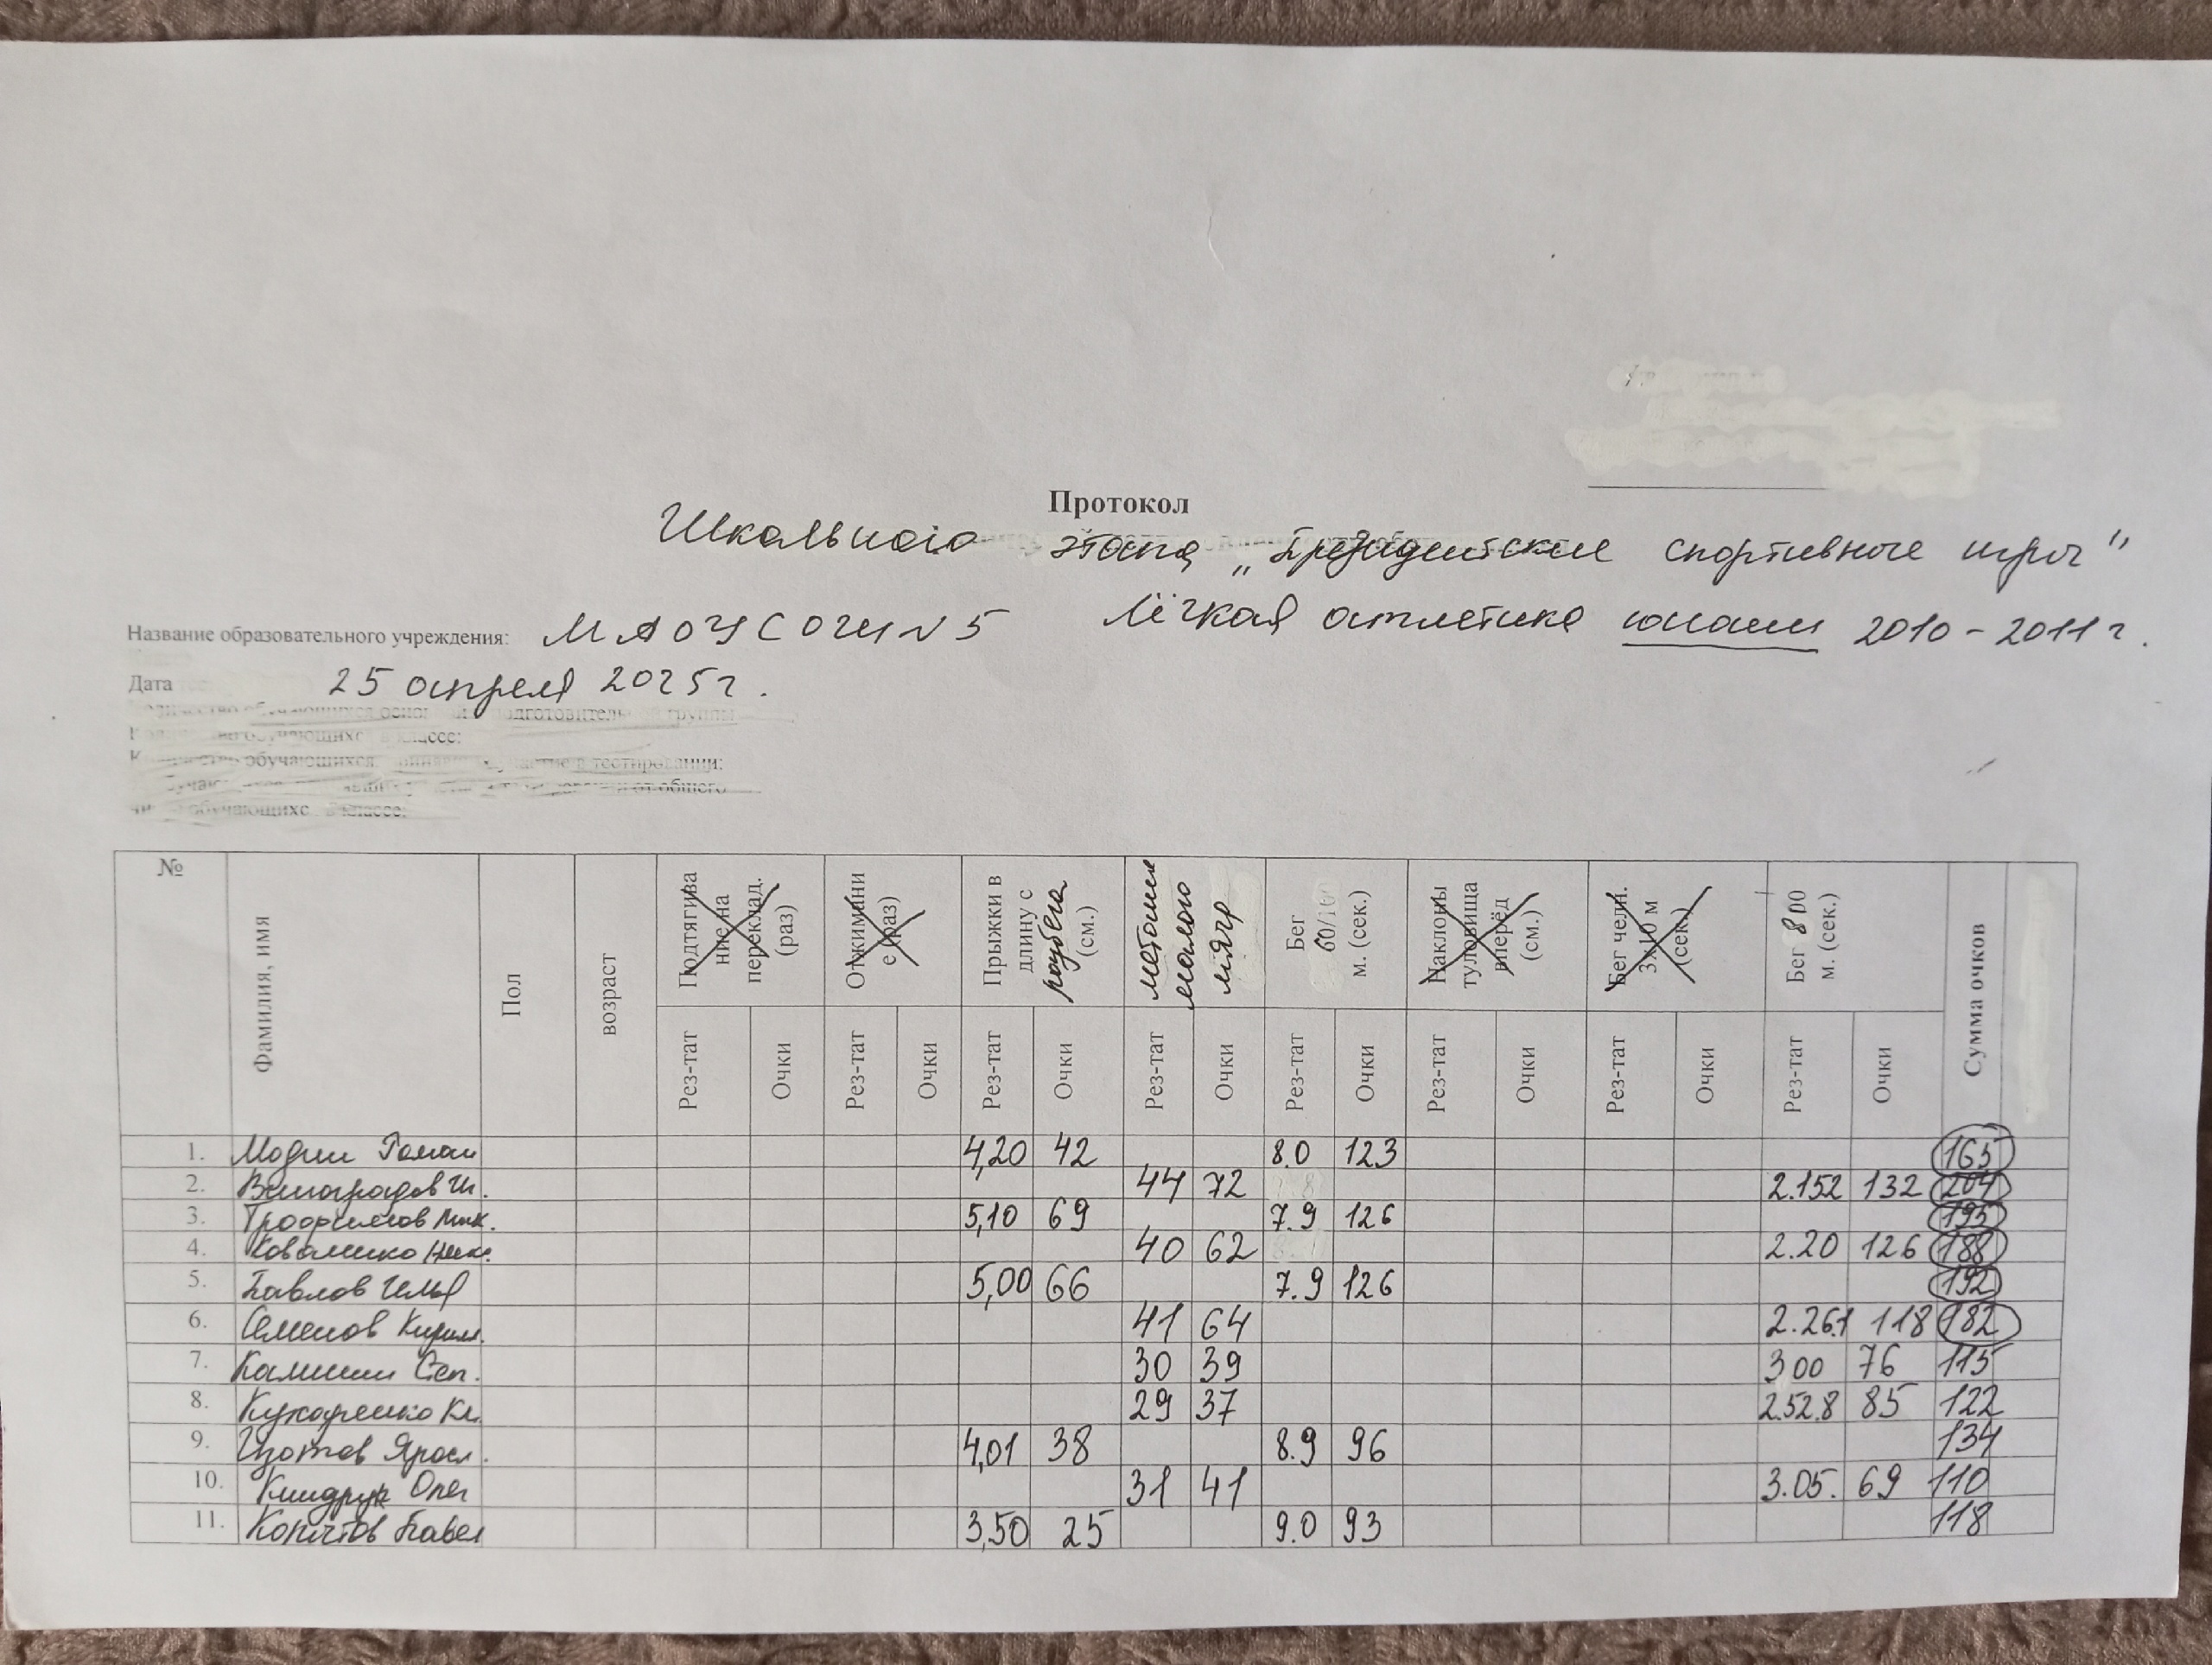 Протокол
Школьного этапа „Президентские спортивные игры"
Название образовательного учреждения: МАОУ СОШ N 5 лёгкая атлетика юноши 2010-2011 г.
Дата 25 апреля 2025г.
обучающихся подготовительной группы
обучающихся в классе:
обучающихся в тестировании:
общего
обучающихся в классе:
№ Фамилия, имя Пол возраст Подтягивание на переклад. (раз) Отжимание (раз) Прыжки в длину с разбега (см.) метание малого мяча Бег 60/100 м. (сек.) Наклоны туловища вперёд (см.) Бег челн. 3х10 м (сек.) Бег 800 м. (сек.) Сумма очков
Рез-тат Очки Рез-тат Очки Рез-тат Очки Рез-тат Очки Рез-тат Очки Рез-тат Очки Рез-тат Очки Рез-тат Очки
1. Модин Роман 4,20 42 8.0 123 165
2. Виноградов И. 44 72 2.152 132 204
3. Трофимов Мик. 5,10 69 7.9 126 195
4. 40 62 2.20 126 188
5. Павлов Илья 5,00 66 7.9 126 192
6. Семенов Кирил. 41 64 2.26.1 118 182
7. Калинин Сеп. 30 39 3 00 76 115
8. Кухаренко Кл. 29 37 2.52.8 85 122
9. Яросл. 4,01 38 8.9 96 134
10. Киндрук Олег 31 41 3.05. 69 110
11. Копытов Павел 3,50 25 9.0 93 118